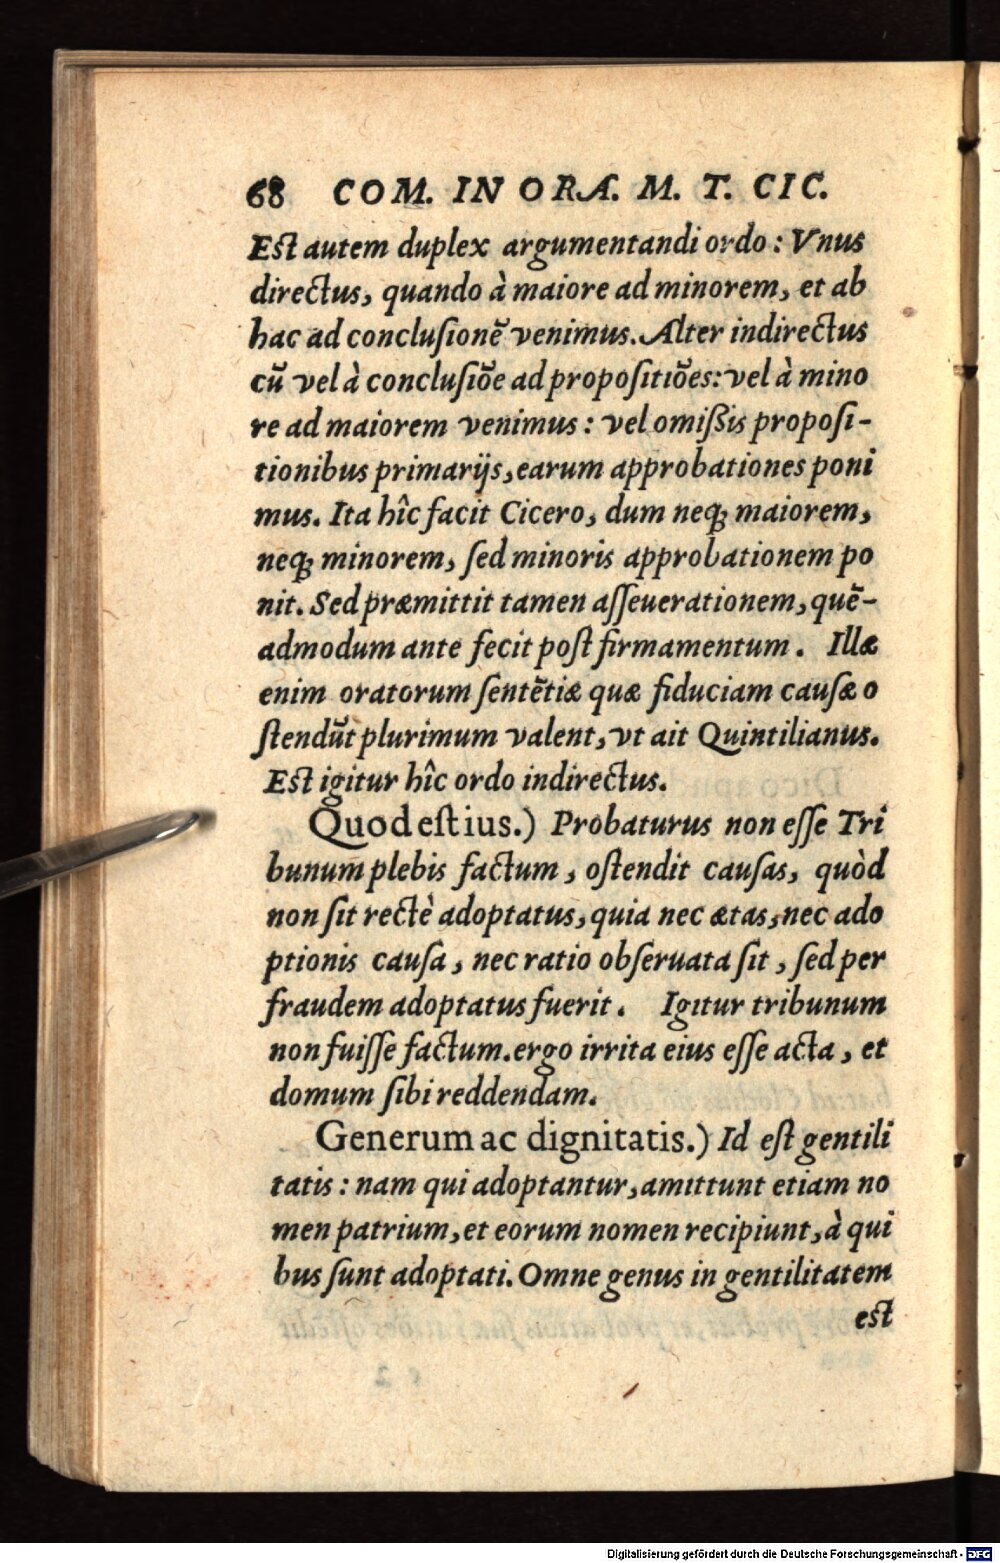 68 COM. IN ORA. M. T. CIC.
Est autem duplex argumentandi ordo: Vnus
directus, quando à maiore ad minorem, et ab
hac ad conclusionē venimus. Alter indirectus
cū vel à conclusiōe ad propositiōes: vel à mino
re ad maiorem venimus: vel omißis proposi-
tionibus primarijs, earum approbationes poni
mus. Ita hîc facit Cicero, dum neq; maiorem,
neq; minorem, sed minoris approbationem po
nit. Sed præmittit tamen asseuerationem, quē-
admodum ante fecit post firmamentum. Illæ
enim oratorum sentētiæ quæ fiduciam causæ o
stendūt plurimum valent, vt ait Quintilianus.
Est igitur hîc ordo indirectus.
Quod est ius.) Probaturus non esse Tri
bunum plebis factum, ostendit causas, quòd
non sit rectè adoptatus, quia nec ætas, nec ado
ptionis causa, nec ratio obseruata sit, sed per
fraudem adoptatus fuerit. Igitur tribunum
non fuisse factum. ergo irrita eius esse acta, et
domum sibi reddendam.
Generum ac dignitatis.) Id est gentili
tatis: nam qui adoptantur, amittunt etiam no
men patrium, et eorum nomen recipiunt, à qui
bus sunt adoptati. Omne genus in gentilitatem
est
Digitalisierung gefördert durch die Deutsche Forschungsgemeinschaft - DFG